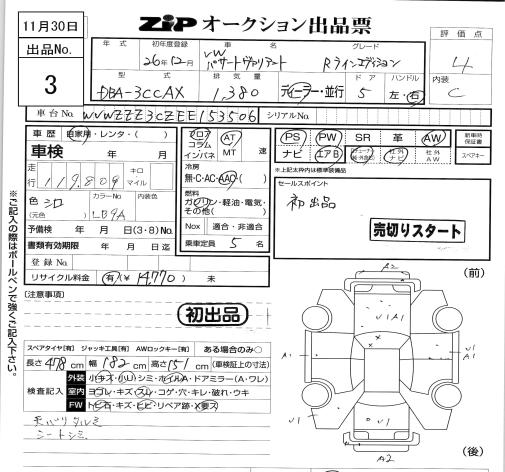 11月30日
出品No.
3
ZIP オークション出品票
評価点
4
内装
C
年式 初年度登録 車名 グレード
26年12月 VW パサートヴァリアント Rラインエディション
型式 排気量 ドア ハンドル
DBA-3CCAX 1,380 ディーラー・並行 5 左・右
車台No. WVWZZZ3CZEE153506 シリアルNo.
車歴 自家用・レンタ・( )
車検 年 月
走行 119,809 キロ マイル
色 シロ カラーNo. 内装色
(元色) LB9A
予備検 年 月 日(3・8)No.
書類有効期限 年 月 日迄
登録No.
リサイクル料金 有(¥14,770) 未
フロア コラム インパネ
AT MT 速
冷房
無・C・AC・AAC
燃料
ガソリン・軽油・電気・その他( )
Nox 適合・非適合
乗車定員 5 名
PS PW SR 革 AW
ナビ エアB 社外ナビ 社外AW
新車時保証書
スペアキー
※上記太枠内は標準装備品
セールスポイント
初出品
売切りスタート
※ご記入の際はボールペンで強くご記入下さい。
[注意事項]
初出品
スペアタイヤ[有] ジャッキ工具[有] AWロックキー[有] ある場合のみ○
長さ 478 cm 幅 182 cm 高さ 151 cm (車検証上の寸法)
検査記入
外装 小キズ・小U・シミ・ホイルA・ドアミラー(A・ワレ)
室内 ヨゴレ・キズ・スレ・コゲ・穴・キレ・破れ・ウキ
FW トビ石・キズ・ヒビ・リペア跡・X要ス
天バリタルミ
シートシミ
(前)
A2
U1
A1
U1A1
A1
U1
U1
A2
(後)